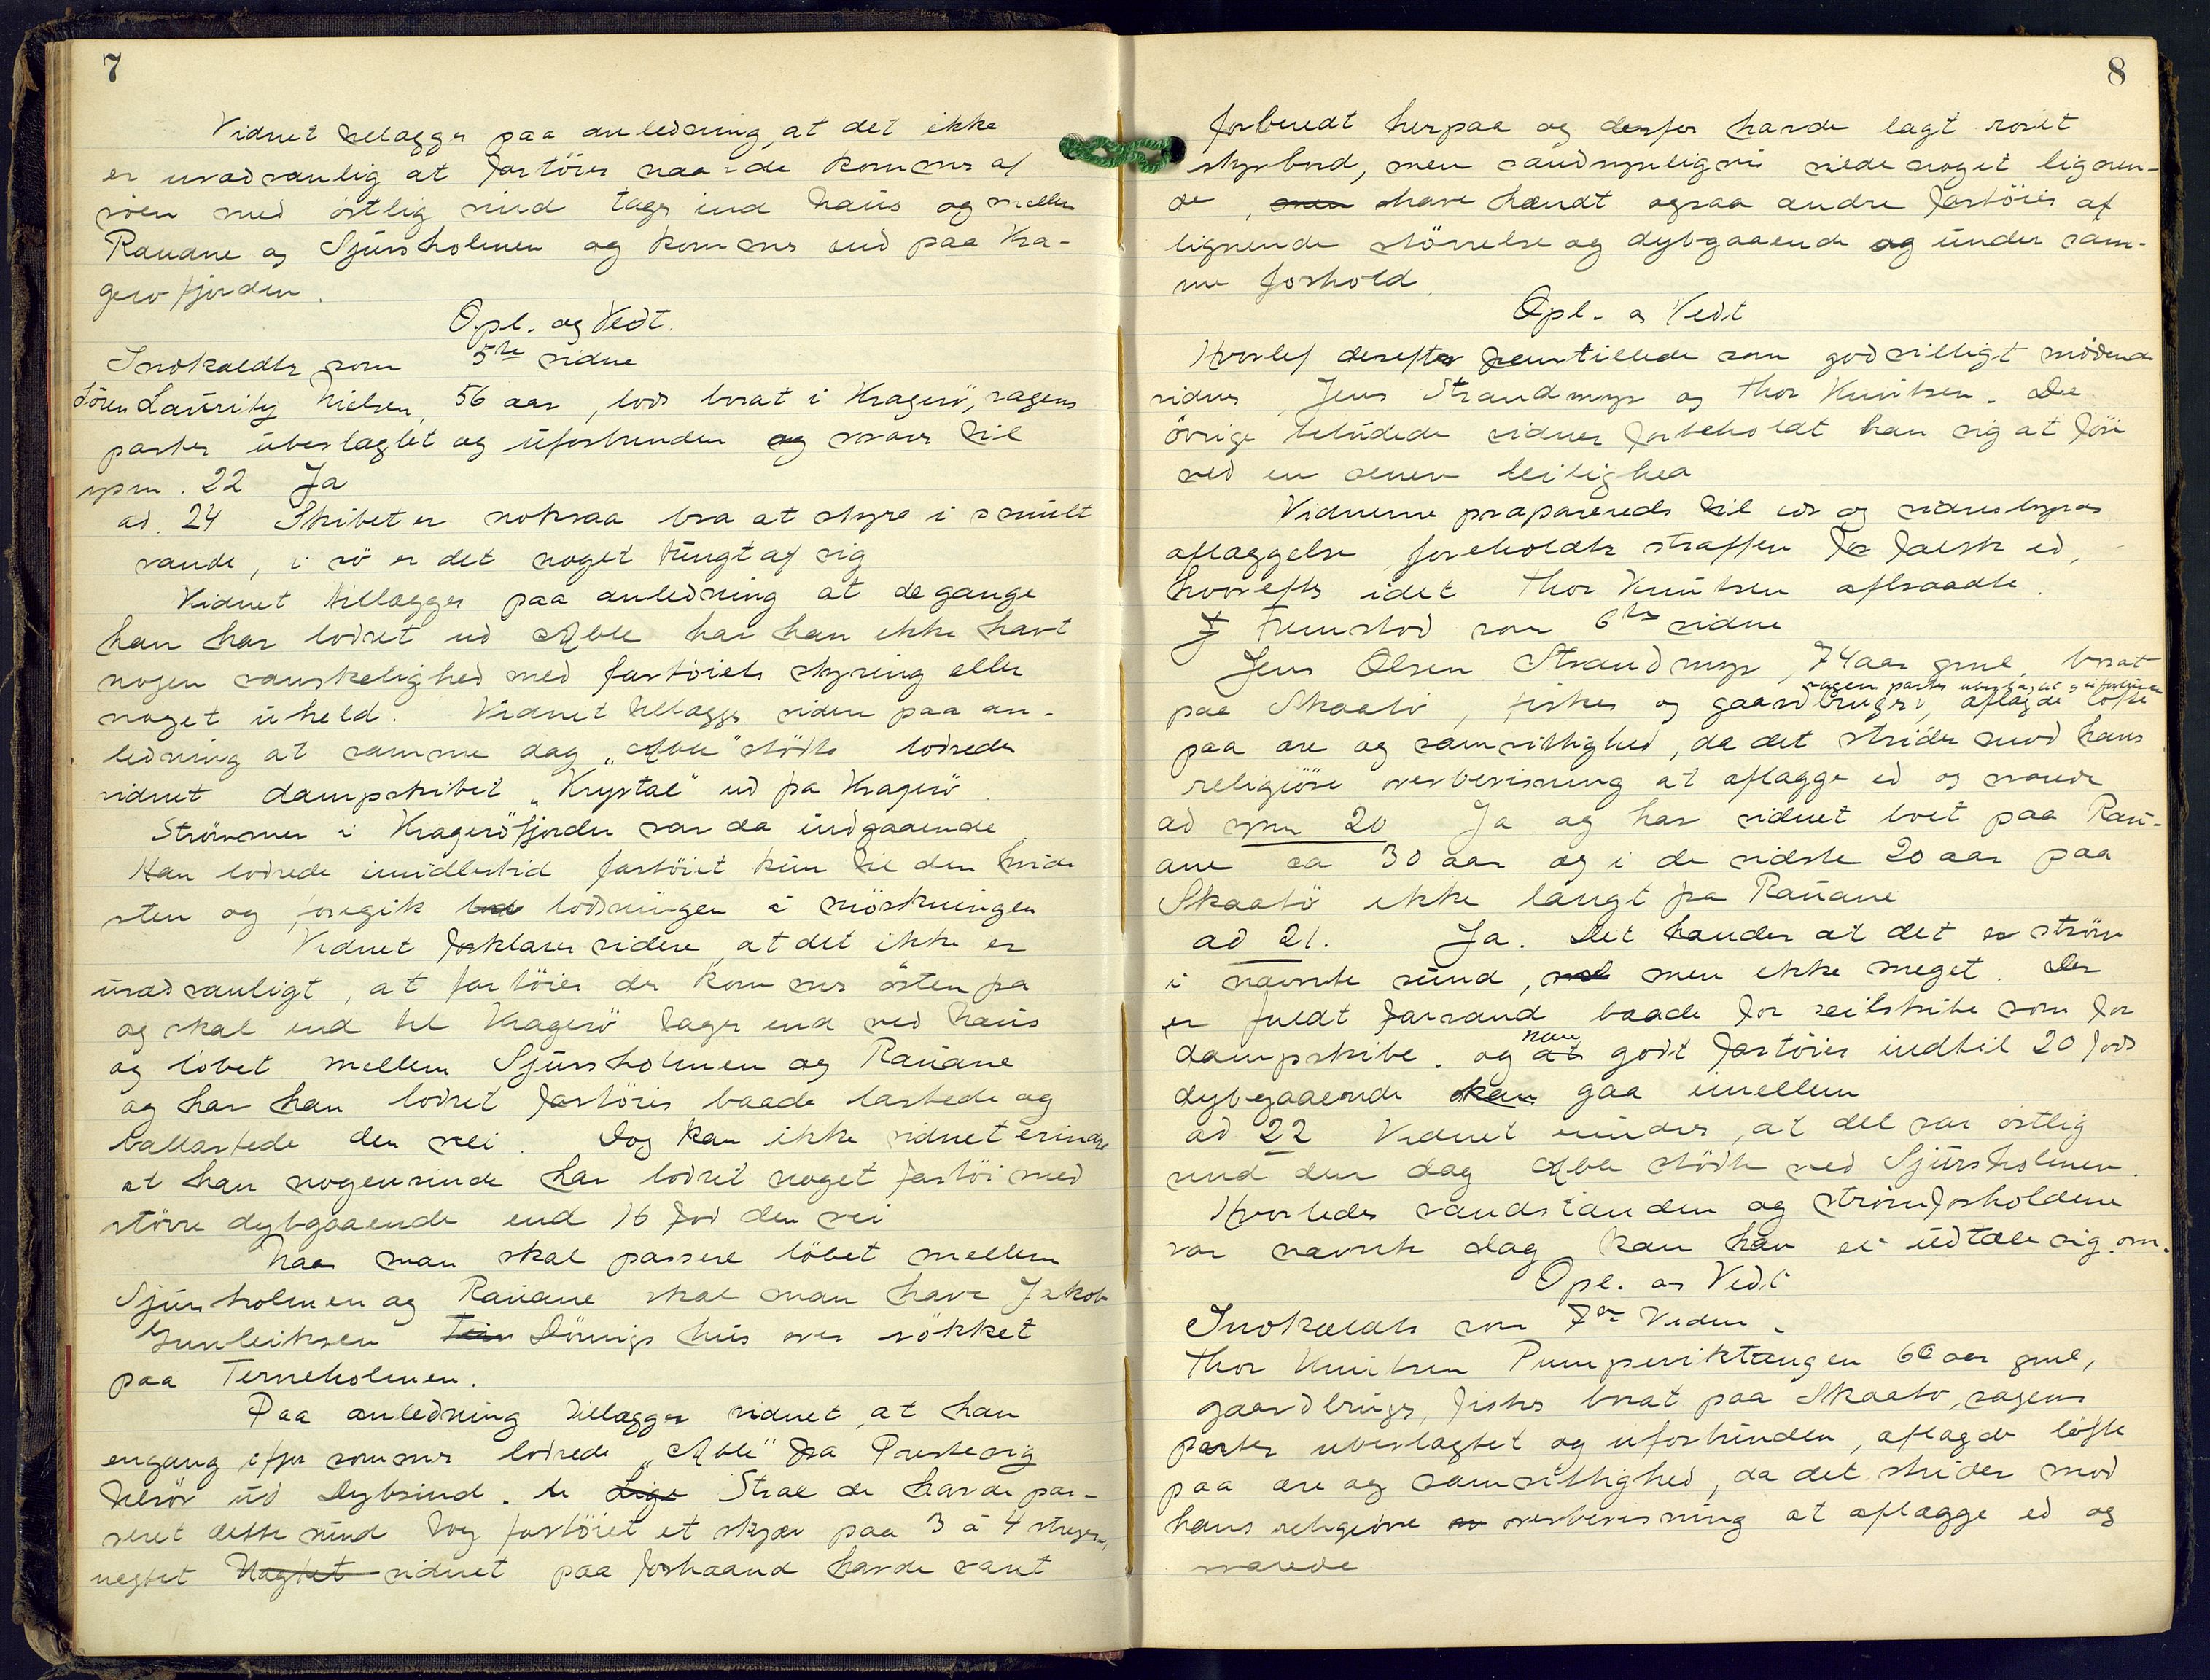 7
Vidnet tillægger paa anledning, at det ikke
er usædvanlig at fartöier naar de kommer af
söen med östlig vind tager ind Haus og mellem
Rauane og Sjursholmen og kommer ind paa Kra-
geröfjorden.
Opl. og Vedt.
Indkaldtes som 5te vidne
Sören Lauritz Nielsen, 56 aar, lods bosat i Kragerö, sagens
parter ubeslægtet og uforbunden og svarer til
spm. 22 Ja
ad. 24 Skibet er noksaa bra at styre i smult
vande, i sö er det noget tungt af sig
Vidnet tillægger paa anledning at de gange
han har lodset ud Able har han ikke havt
nogen vanskelighed med fartöiets styring eller
noget uheld. Vidnet tillægger videre paa an-
ledning at samme dag "Able" stödte lodsede
vidnet dampskibet "Krystal" ud fra Kragerö.
Strömmen i Krageröfjorden var da indgaaende.
Han lodsede imidlertid fartöiet kun til den hvide
sten og foregik lodsningen i mörkningen
Vidnet forklarer videre, at det ikke er
usædvanligt, at fartöier der kommer östen fra
og skal ind til Kragerö tager ind ved Haus
og löbet mellem Sjursholmen og Rauane
og har han lodset fartöier baade lastede og
ballastede den vei. Dog kan ikke vidnet erindre
at han nogensinde har lodset noget fartöi med
större dybgaaende end 16 fod den vei
Naar man skal passere löbet mellem
Sjursholmen og Rauane skal man have Jakob
Gunleiksen Dönnigs hus over sökket
paa Terneholmen.
Paa anledning tillægger vidnet, at han
engang ifjor sommer lodsede "Able" fra Prestevig
tilsös ud Dybsund. Lige Strax de havde pas-
seret dette sund tog fartöiet et skjær paa 3 à 4 streger,
uagtet Uagtet vidnet paa forhaand havde været
8
forberedt herpaa og derfor havde lagt roret
styrbord, men sandsynligvis vilde noget lignen-
de, men have hændt ogsaa andre fartöier af
lignende störrelse og dybgaaende og under sam-
me forhold.
Opl. og Vedt
Hvorlef derefter fremstillede som godvilligt mödende
vidner Jens Strandmyr og Thor Knutsen. De
övrige betudede vidner forbeholdt han sig at före
ved en senere leilighed
Vidnerne præpareredes til ed og vidnesbyrds
aflæggelse, foreholdte straffen for falsk ed,
hvorefter idet Thor Knutsen aftraadte.
F Fremstod som 6te vidne
Jens Olsen Strandmyr, 74 aar gml, bosat
sagens parter ubeslægtet og uforbunden
paa Skaatö, fisker og gaardbruger, aflagde löfte
paa ære og samvittighed, da det strider mod hans
religiöse overbevisning at aflægge ed og svarede
ad spm 20 Ja og har vidnet boet paa Rau-
ane ca 30 aar og i de sidste 20 aar paa
Skaatö ikke langt fra Rauane
ad 21. Ja. Det hænder at det er ström
i nævnte sund, men ikke meget. Der
er fuldt farvand baade for seilskibe som for
dampskibe. og at godt fartöier indtil 20 fods
dybgaaende kan gaa imellem
ad 22 Vidnet mindes, at det var östlig
vind den dag Able stödte ved Sjursholmen.
Hvorledes vandstanden og strömforholdene
var nævnte dag kan han ei udtale sig om.
Opl. og Vedt
Indkaldtes som 7de Vidne.
Thor Knutsen Pumperviktangen 60 aar gml,
gaardbruger, fisker bosat paa Skaatö, sagens
parter ubeslægtet og uforbunden, aflagde löfte
paa ære og samvittighed, da det strider mod
hans religiöse overbevisning at aflægge ed og
svarede